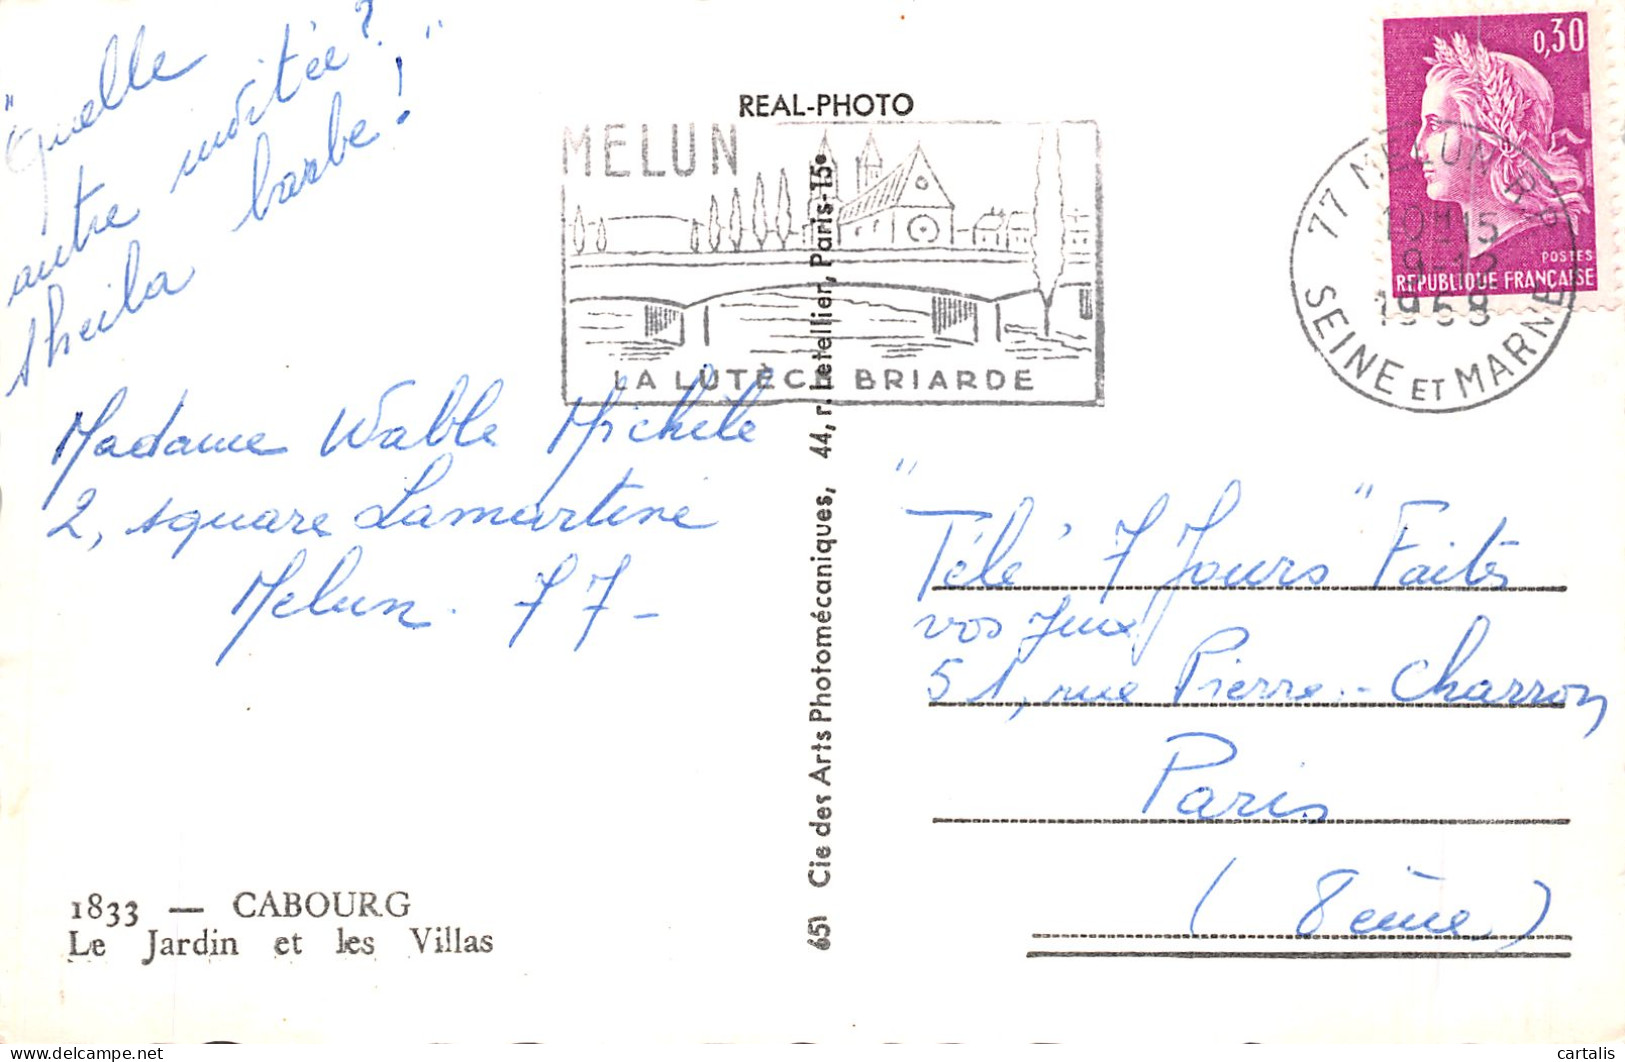 "Quelle
autre invitée?
sheila barbe! "
Madame Wable Michèle
2, square Lamartine
Melun. 77 -
1833 — CABOURG
Le Jardin et les Villas
REAL-PHOTO
MELUN
LA LUTÈCE BRIARDE
651 Cie des Arts Photomécaniques, 44, r. Letellier, Paris-15e
0,30
POSTES
REPUBLIQUE FRANÇAISE
77 MELUN R.P.
10H15
9-12
1968
SEINE ET MARNE
"Télé 7 Jours" Faites
vos jeux
51, rue Pierre-Charron
Paris
(8ème)
cartalis